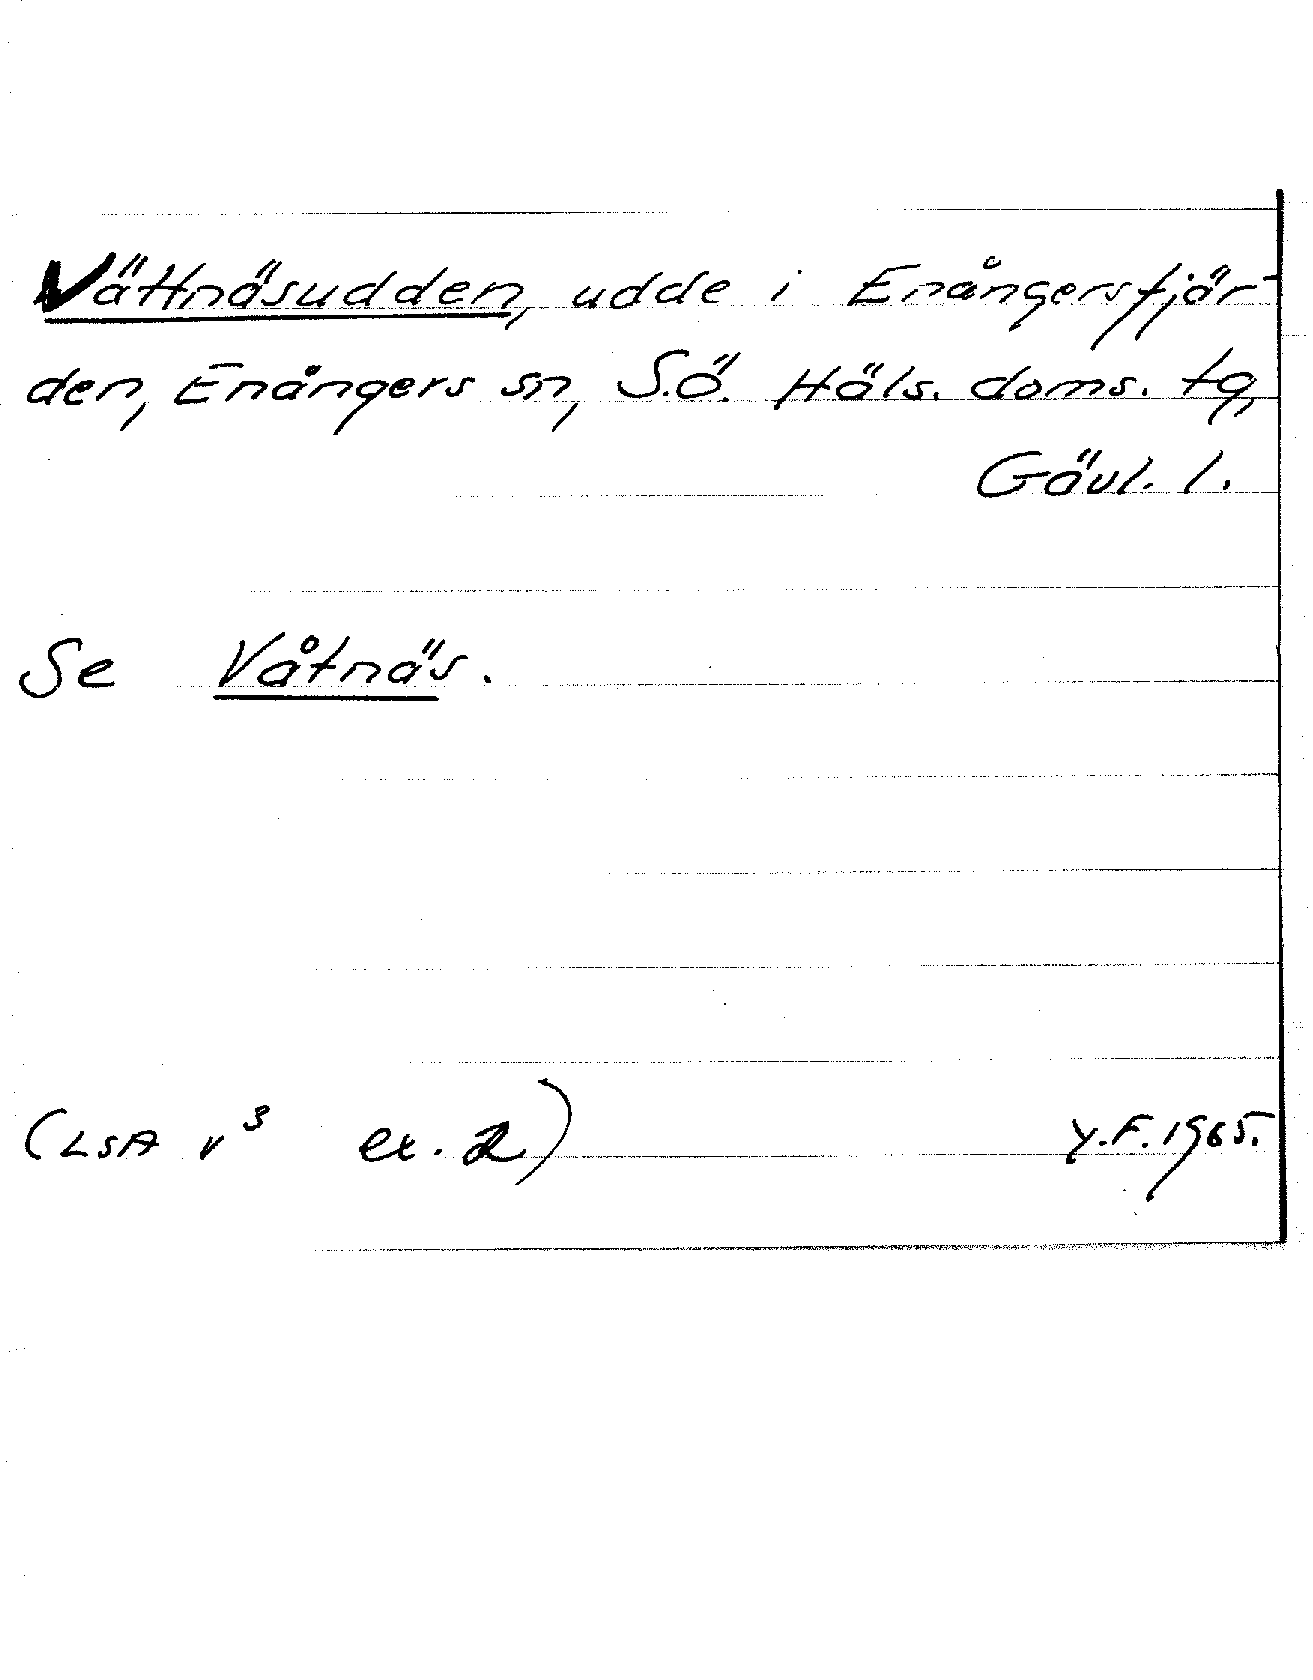 Vättnäsudden, udde i Enångersfjär-
den, Enångers sn, S.Ö. Häls. doms. tg,
Gävl. l.
Se Våtnäs.
(LSA v³ ex. 2) Y.F. 1965.